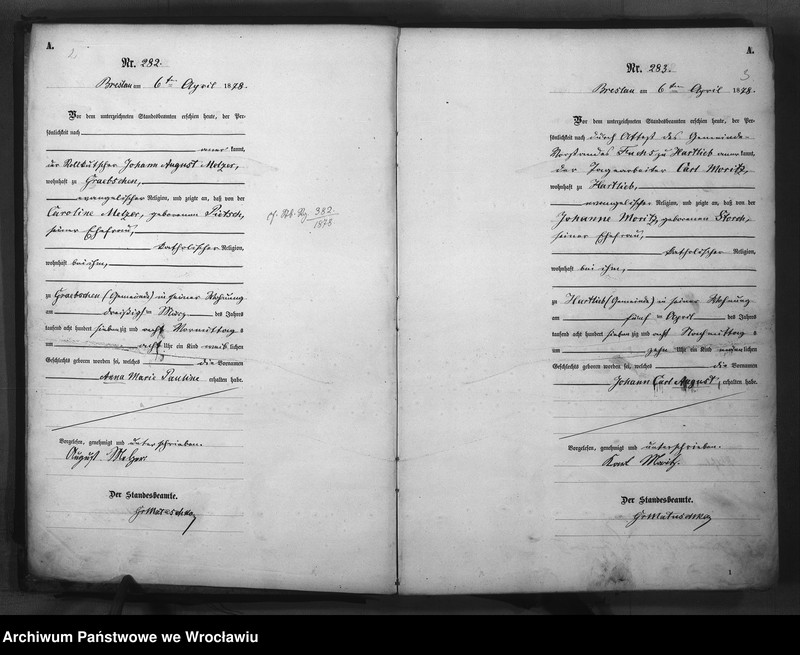 A.
2
Nr. 282.
Breslau am 6ten April 1878.
Vor dem unterzeichneten Standesbeamten erschien heute, der Per-
sönlichkeit nach
aner kannt,
der Rollkutscher Johann August Melzer,
wohnhaft zu Graebschen,
evangelischer Religion, und zeigte an, daß von der
Caroline Melzer, geborenen Pietsch,
seiner Ehefrau,
katholischer Religion,
wohnhaft bei ihm,
zu Graebschen (Gemeinde) in seiner Wohnung
am dreißigsten März des Jahres
tausend acht hundert siebenzig und acht Vormittags
um acht Uhr ein Kind weiblichen
Geschlechts geboren worden sei, welches die Vornamen
Anna Marie Pauline erhalten habe.
Vorgelesen, genehmigt und unterschrieben.
August Melzer.
Der Standesbeamte.
Gr Matuschka
382/1878
A.
3
Nr. 283.
Breslau am 6ten April 1878.
Vor dem unterzeichneten Standesbeamten erschien heute, der Per-
sönlichkeit nach durch Attest des Gemeinde-
Vorstandes Fuchs zu Hartlieb anerkannt,
der Tagearbeiter Carl Moritz,
wohnhaft zu Hartlieb,
evangelischer Religion, und zeigte an, daß von der
Johanne Moritz, geborenen Storch,
seiner Ehefrau,
katholischer Religion,
wohnhaft bei ihm,
zu Hartlieb (Gemeinde) in seiner Wohnung
am fünften April des Jahres
tausend acht hundert siebenzig und acht Nachmittags
um zehn Uhr ein Kind männlichen
Geschlechts geboren worden sei, welches die Vornamen
Johann Carl August, erhalten habe.
Vorgelesen, genehmigt und unterschrieben.
Karl Moritz.
Der Standesbeamte.
Gr Matuschka
1
Archiwum Państwowe we Wrocławiu